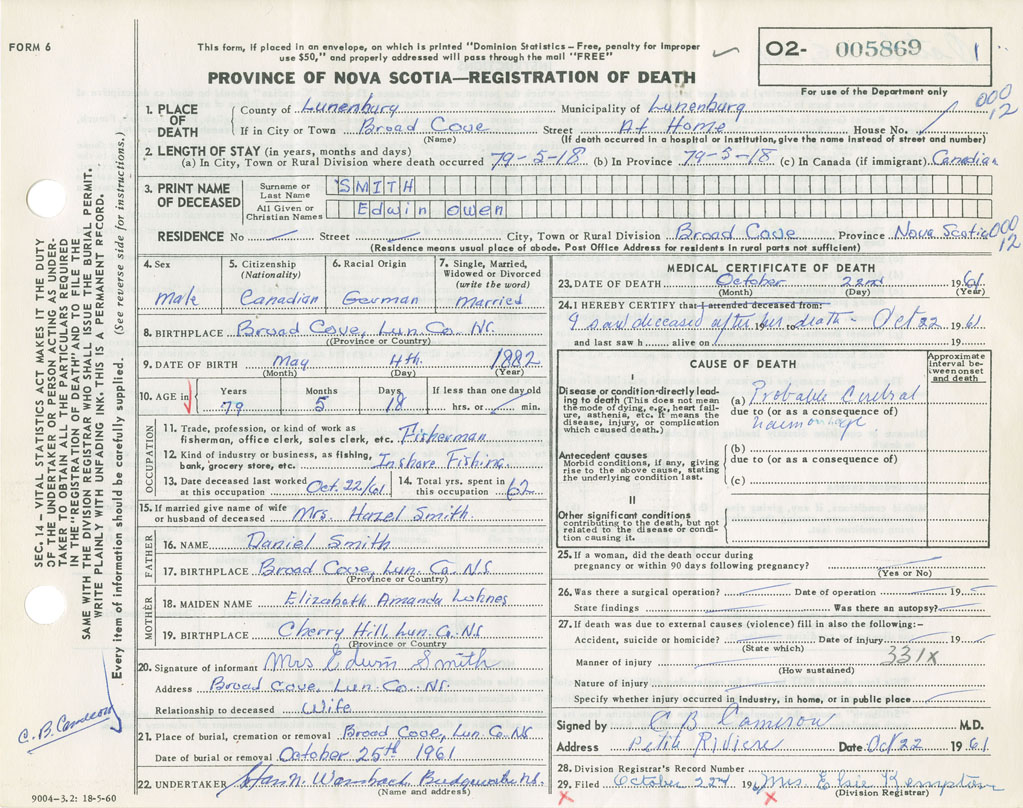 FORM 6
This form, if placed in an envelope, on which is printed "Dominion Statistics – Free, penalty for improper
use $50," and properly addressed will pass through the mail "FREE"
PROVINCE OF NOVA SCOTIA—REGISTRATION OF DEATH
02- 005869 1
For use of the Department only
000
12
1. PLACE OF DEATH
County of Lunenburg Municipality of Lunenburg
If in City or Town Broad Cove Street At Home House No.
(Name) (If death occurred in a hospital or institution, give the name instead of street and number)
2. LENGTH OF STAY (in years, months and days)
(a) In City, Town or Rural Division where death occurred 79-5-18 (b) In Province 79-5-18 (c) In Canada (if immigrant) Canadian
3. PRINT NAME OF DECEASED
Surname or Last Name SMITH
All Given or Christian Names Edwin owen
RESIDENCE No Street City, Town or Rural Division Broad Cove Province Nova Scotia 000
12
(Residence means usual place of abode. Post Office Address for residents in rural parts not sufficient)
4. Sex
Male
5. Citizenship (Nationality)
Canadian
6. Racial Origin
German
7. Single, Married, Widowed or Divorced (write the word)
Married
8. BIRTHPLACE Broad Cove, Lun. Co. NS.
(Province or Country)
9. DATE OF BIRTH May 4th. 1882
(Month) (Day) (Year)
10. AGE in Years Months Days If less than one day old
79 5 18 hrs. or min.
OCCUPATION
11. Trade, profession, or kind of work as
fisherman, office clerk, sales clerk, etc. Fisherman
12. Kind of industry or business, as fishing,
bank, grocery store, etc. Inshore Fishing.
13. Date deceased last worked
at this occupation Oct. 22/61
14. Total yrs. spent in
this occupation 62
15. If married give name of wife
or husband of deceased Mrs. Hazel Smith.
FATHER
16. NAME Daniel Smith
17. BIRTHPLACE Broad Cove, Lun. Co. N.S
(Province or Country)
MOTHER
18. MAIDEN NAME Elizabeth Amanda Lohnes
19. BIRTHPLACE Cherry Hill, Lun. Co. NS
(Province or Country)
20. Signature of informant Mrs Edwin Smith
Address Broad Cove, Lun. Co. NS.
Relationship to deceased Wife
21. Place of burial, cremation or removal Broad Cove, Lun Co. NS
Date of burial or removal October 25th 1961
22. UNDERTAKER
(Name and address)
9004-3.2: 18-5-60
MEDICAL CERTIFICATE OF DEATH
23. DATE OF DEATH October 22nd 1961
(Month) (Day) (Year)
24. I HEREBY CERTIFY that I attended deceased from:
I saw deceased after his death - Oct 22 1961
and last saw h alive on 19
CAUSE OF DEATH
Approximate interval between onset and death
I
Disease or condition directly leading to death (This does not mean the mode of dying, e.g., heart failure, asthenia, etc. It means the disease, injury, or complication which caused death.)
(a) Probable Cerebral
due to (or as a consequence of)
haemorrhage
Antecedent causes
Morbid conditions, if any, giving rise to the above cause, stating the underlying condition last.
(b)
due to (or as a consequence of)
(c)
II
Other significant conditions
contributing to the death, but not related to the disease or condition causing it.
25. If a woman, did the death occur during
pregnancy or within 90 days following pregnancy?
(Yes or No)
26. Was there a surgical operation? Date of operation 19
State findings Was there an autopsy?
27. If death was due to external causes (violence) fill in also the following:–
Accident, suicide or homicide? Date of injury 19
(State which) 331x
Manner of injury
(How sustained)
Nature of injury
Specify whether injury occurred in industry, in home, or in public place
Signed by C B Cameron M.D.
Address Petite Riviere Date Oct 22 1961
28. Division Registrar's Record Number
29. Filed October 22d 196 Mrs Elsie Kempton
(Division Registrar)
SEC. 14 – VITAL STATISTICS ACT MAKES IT THE DUTY
OF THE UNDERTAKER OR PERSON ACTING AS UNDER-
TAKER TO OBTAIN ALL THE PARTICULARS REQUIRED
IN THE "REGISTRATION OF DEATH" AND TO FILE THE
SAME WITH THE DIVISION REGISTRAR WHO SHALL ISSUE THE BURIAL PERMIT.
WRITE PLAINLY WITH UNFADING INK. THIS IS A PERMANENT RECORD.
Every item of information should be carefully supplied. (See reverse side for instructions.)
C. B. Cameron